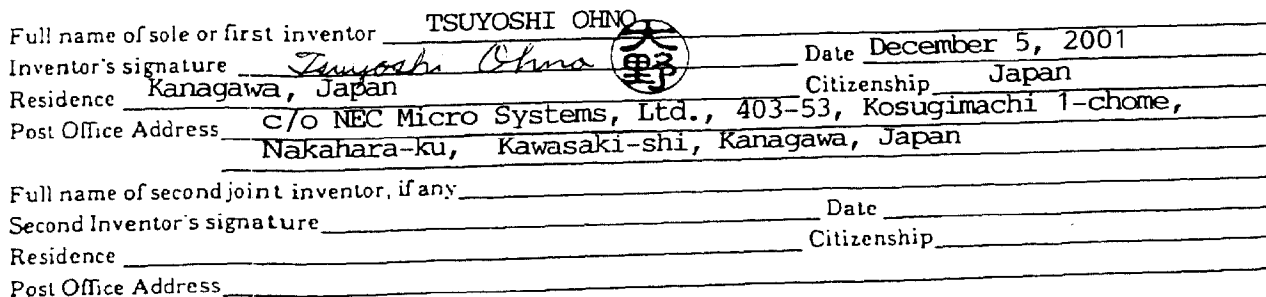 Full name of sole or first inventor TSUYOSHI OHNO
Inventor's signature Tsuyoshi Ohno 大野 Date December 5, 2001
Residence Kanagawa, Japan Citizenship Japan
Post Office Address c/o NEC Micro Systems, Ltd., 403-53, Kosugimachi 1-chome,
Nakahara-ku, Kawasaki-shi, Kanagawa, Japan
Full name of second joint inventor, if any
Second Inventor's signature Date
Residence Citizenship
Post Office Address